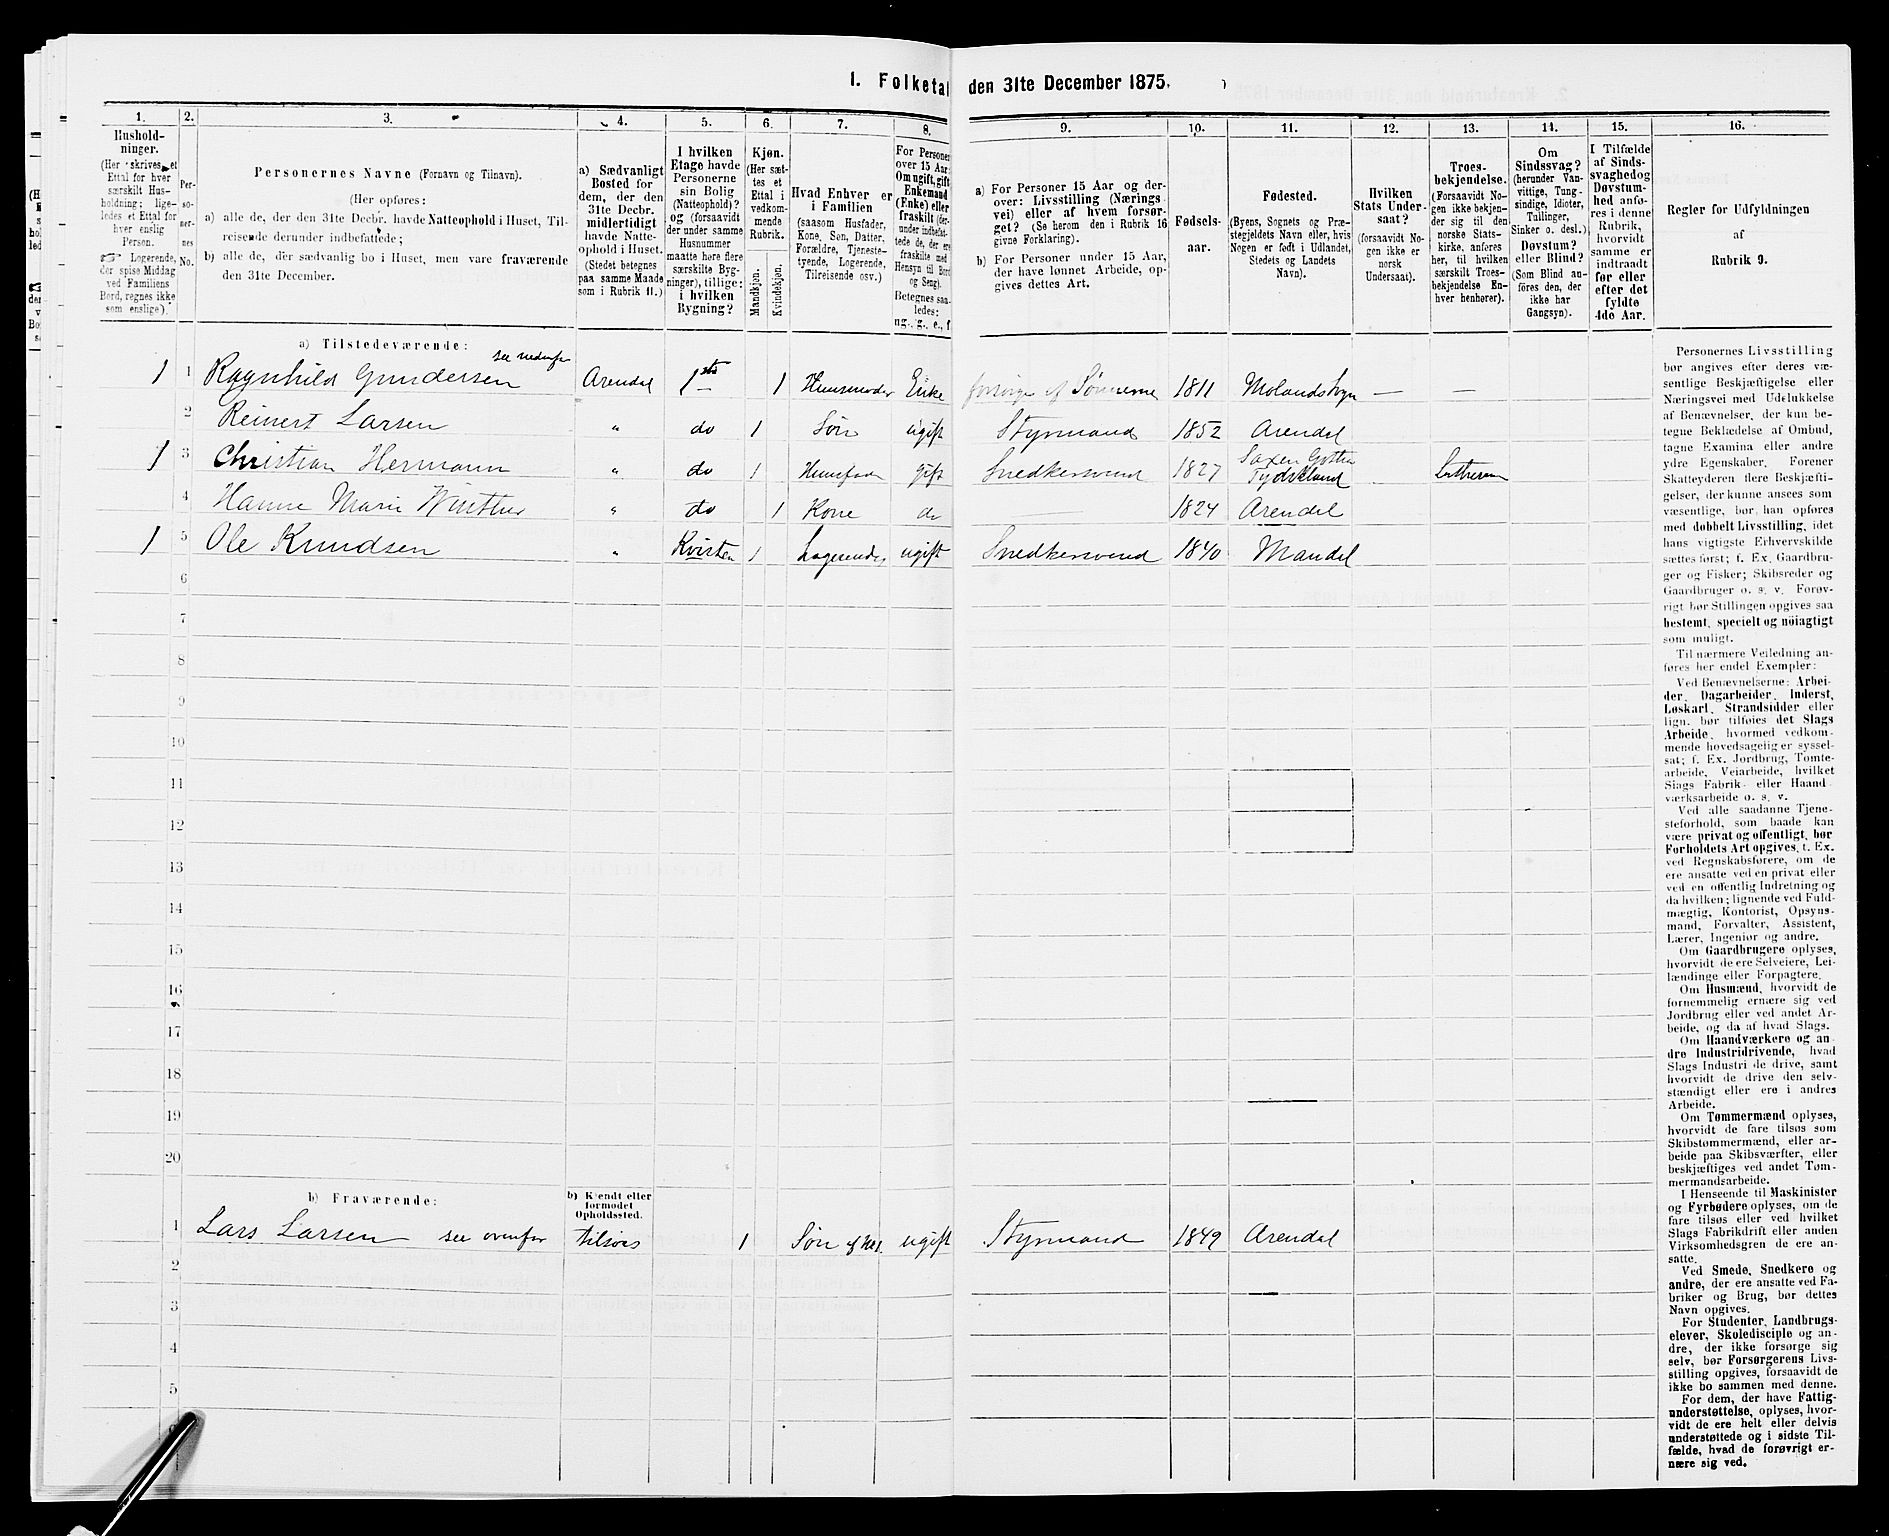 1. Folketal den 31te December 1875.
1. 2. 3. 4. 5. 6. 7. 8. 9. 10. 11. 12. 13. 14. 15. 16.
Husholdninger.
(Her skrives et
Ettal for hver
særskilt Husholdning;
ligeledes et Ettal for
hver enslig
Person.
Logerende,
der spise Middag
ved Familiens
Bord, regnes ikke
som enslige).
Personernes No.
Personernes Navne (Fornavn og Tilnavn).
(Her opføres:
a) alle de, der den 31te Decbr. havde Natteophold i Huset, Tilreisende derunder indbefattede;
b) alle de, der sædvanlig bo i Huset, men vare fraværende
den 31te December.
a) Sædvanligt
Bosted for
dem, der den
31te Decbr.
midlertidigt
havde Natteophold i Huset.
(Stedet betegnes
paa samme Maade
som i Rubrik 11.)
I hvilken
Etage havde
Personerne
sin Bolig
(Natteophold)?
og (forsaavidt
der under samme
Husnummer
maatte høre flere
særskilte Bygninger), tillige:
i hvilken
Bygning?
Kjøn.
(Her sættes et
Ettal i
vedkommende
Rubrik.
Mandkjøn.
Kvindekjøn.
Hvad Enhver er
i Familien
(saasom Husfader,
Kone, Søn, Datter,
Forældre, Tjenestetyende, Logerende,
Tilreisende osv.)
For Personer
over 15 Aar:
Om ugift, gift
Enkemand
(Enke) eller
fraskilt (derunder indbefattede de, der ere
fraskilte med
Hensyn til Bord
og Seng).
Betegnes saaledes:
ug., g., e., f.
a) For Personer 15 Aar og derover: Livsstilling (Næringsvei) eller af hvem forsørget? (Se herom den i Rubrik 16
givne Forklaring).
b) For Personer under 15 Aar,
der have lønnet Arbeide, opgives dettes Art.
Fødselsaar.
Fødested.
(Byens, Sognets og Præstegjeldets Navn eller, hvis
Nogen er født i Udlandet,
Stedets og Landets
Navn).
Hvilken
Stats Undersaat?
(forsaavidt Nogen ikke er
norsk
Undersaat).
Troesbekjendelse.
(Forsaavidt Nogen ikke bekjender sig til den
norske Statskirke, anføres
her, til hvilken
særskilt Troesbekjendelse Enhver henhører).
Om
Sindssvag?
(herunder Vanvittige, Tungsindige, Idioter,
Tullinger,
Sinker o. desl.)
Døvstum?
eller Blind?
(Som Blind anføres den, der
ikke har
Gangsyn).
I Tilfælde
af Sindssvaghed og
Døvstumhed anføres i denne
Rubrik,
hvorvidt
samme er
indtraadt
før eller
efter det
fyldte
4de Aar.
Regler for Udfyldningen
af
Rubrik 9.
a) Tilstedeværende:
1 1 Ragnhild Gundersen see nedenfor Arendal 1ste 1 Husmoder Enke forsørges af Sønnerne 1811 Molands Sogn — —
2 Reinert Larsen " do 1 Søn ugift Styrmand 1852 Arendal
1 3 Christian Hermann " do 1 Huusfader gift Snedkersvend 1827 Saxen Gotha Tydskland Lutheran
4 Hanne Marie Winther " do 1 Kone do — 1824 Arendal
1 5 Ole Knudsen " Kvisten 1 Logerende ugift Snedkersvend 1840 Mandal
6
7
8
9
10
11
12
13
14
15
16
17
18
19
20
b) Fraværende:
b) Kjendt eller
formodet
Opholdssted.
1 Lars Larsen see ovenfor tilsøes 1 Søn ugift Styrmand 1849 Arendal
2
3
4
5
Personernes Livsstilling
bør angives efter deres væsentlige Beskjæftigelse eller
Næringsvei med Udelukkelse
af Benævnelser, der kun betegne Beklædelse af Ombud,
tagne Examina eller andre
ydre Egenskaber. Forener
Skatteyderen flere Beskjæftigelser, der kunne ansees som
væsentlige, bør han opføres
med dobbelt Livsstilling, idet
hans vigtigste Erhvervskilde
sættes først; f. Ex. Gaardbruger og Fisker; Skibsreder og
Gaardbruger o. s. v. Forøvrigt bør Stillingen opgives saa
bestemt, specielt og nöiagtigt
som muligt.
Til nærmere Veiledning anføres her endel Exempler:
Ved Benævnelserne: Arbeider, Dagarbeider, Inderst,
Løskarl, Strandsidder eller
lign. bør tilføies det Slags
Arbeide, hvormed vedkommende hovedsagelig er sysselsat; f. Ex. Jordbrug, Tomtearbeide, Veiarbeide, hvilket
Slags Fabrik- eller Haandværksarbeide o. s. v.
Ved alle saadanne Tjenesteforhold, som baade kan
være privat og offentligt, bør
Forholdets Art opgives, t. Ex.
ved Regnskabsførere, om de
ere ansatte ved en privat eller
ved en offentlig Indretning og
da hvilken; lignende ved Fuldmægtig, Kontorist, Opsynsmand, Forvalter, Assistent,
Lærer, Ingeniør og andre.
Om Gaardbrugere oplyses,
hvorvidt de ere Selveiere, Leilændinge eller Forpagtere.
Om Husmænd, hvorvidt de
fornemmelig ernære sig ved
Jordbrug eller ved andet Arbeide, og da af hvad Slags.
Om Haandværkere og andre Industridrivende, hvad
Slags Industri de drive, samt
hvorvidt de drive den selvstændigt eller ere i andres
Arbeide.
Om Tømmermænd oplyses,
hvorvidt de fare tilsøs som
Skibstømmermænd, eller arbeide paa Skibsværfter, eller
beskjæftiges ved andet Tømmermandsarbeide.
I Henseende til Maskinister
og Fyrbødere oplyses, om de
fare tilsøs eller ved hvilket
Slags Fabrikdrift eller anden
Virksomhedsgren de ere ansatte.
Ved Smede, Snedkere og
andre, der ere ansatte ved Fabriker og Brug, bør dettes
Navn opgives.
For Studenter, Landbrugselever, Skoledisciple og andre, der ikke forsørge sig
selv, bør Forsørgerens Livsstilling opgives, forsaavidt de
ikke bo sammen med denne.
For dem, der have Fattigunderstøttelse, oplyses, hvorvidt de ere helt eller delvis
understøttede og i sidste Tilfælde, hvad de forøvrigt ernære sig ved.